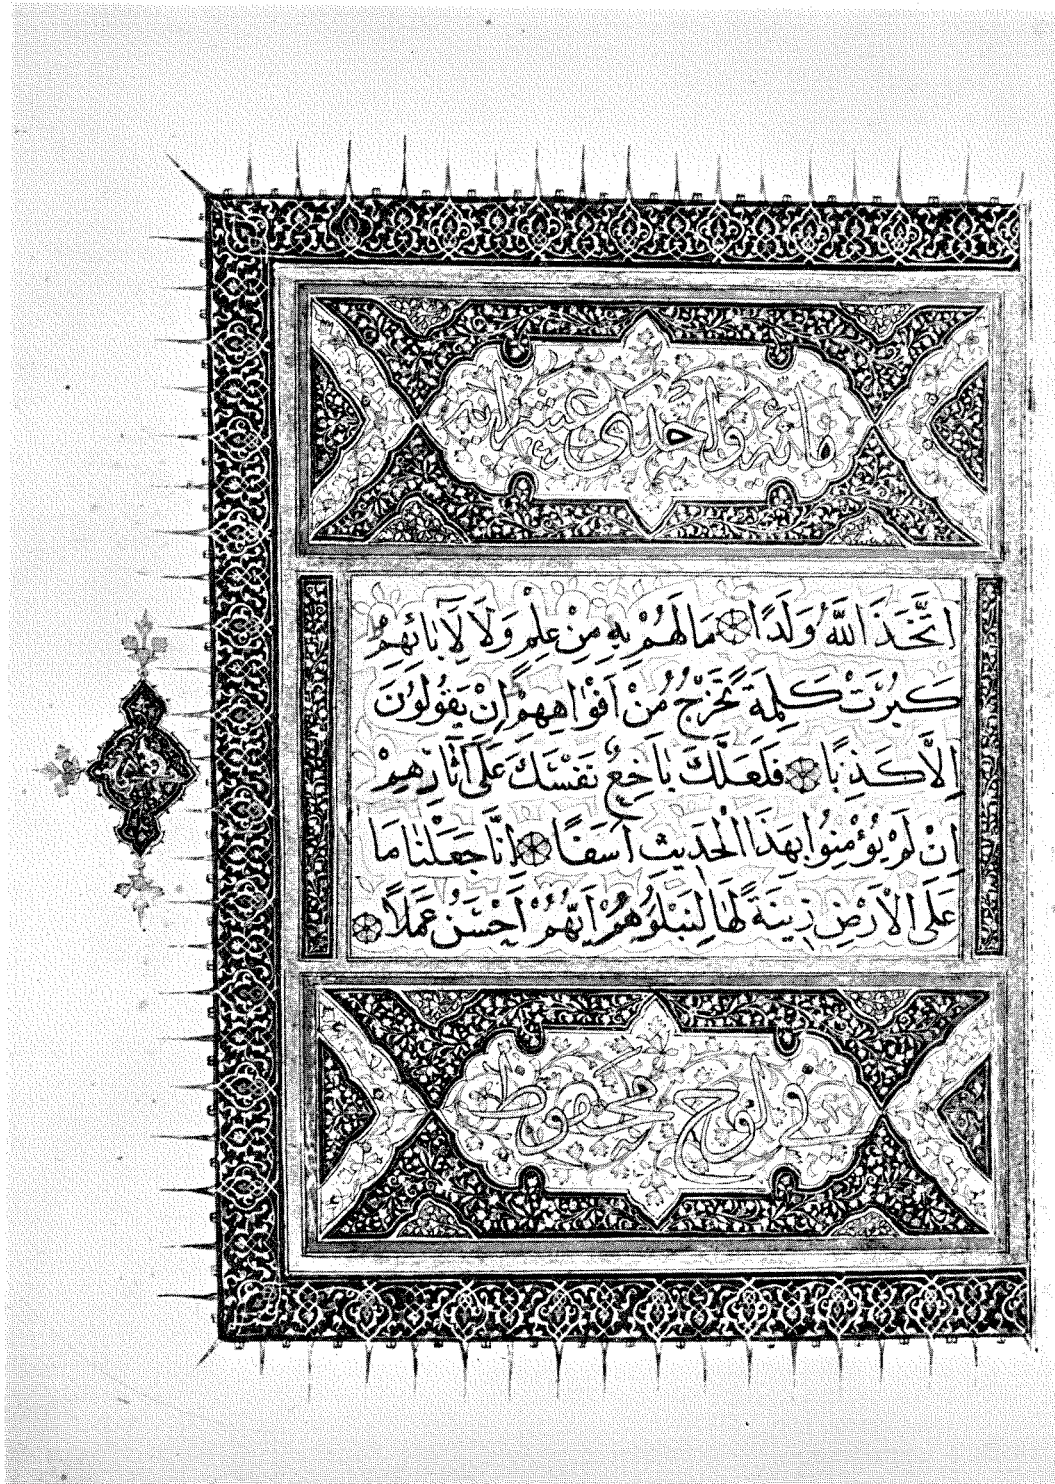 مائة واحدى عشر
اتَّخَذَ اللَّهُ وَلَدًا مَا لَهُمْ بِهِ مِنْ عِلْمٍ وَلَا لِآبَائِهِمْ
كَبُرَتْ كَلِمَةً تَخْرُجُ مِنْ اَفْوَاهِهِمْ اِنْ يَقُولُونَ
اِلَّا كَذِبًا فَلَعَلَّكَ بَاخِعٌ نَفْسَكَ عَلَى آثَارِهِمْ
اِنْ لَمْ يُؤْمِنُوا بِهَذَا الْحَدِيثِ اَسَفًا اِنَّا جَعَلْنَا مَا
عَلَى الْاَرْضِ زِينَةً لَهَا لِنَبْلُوَهُمْ اَيُّهُمْ اَحْسَنُ عَمَلًا
في لوح محفوظ